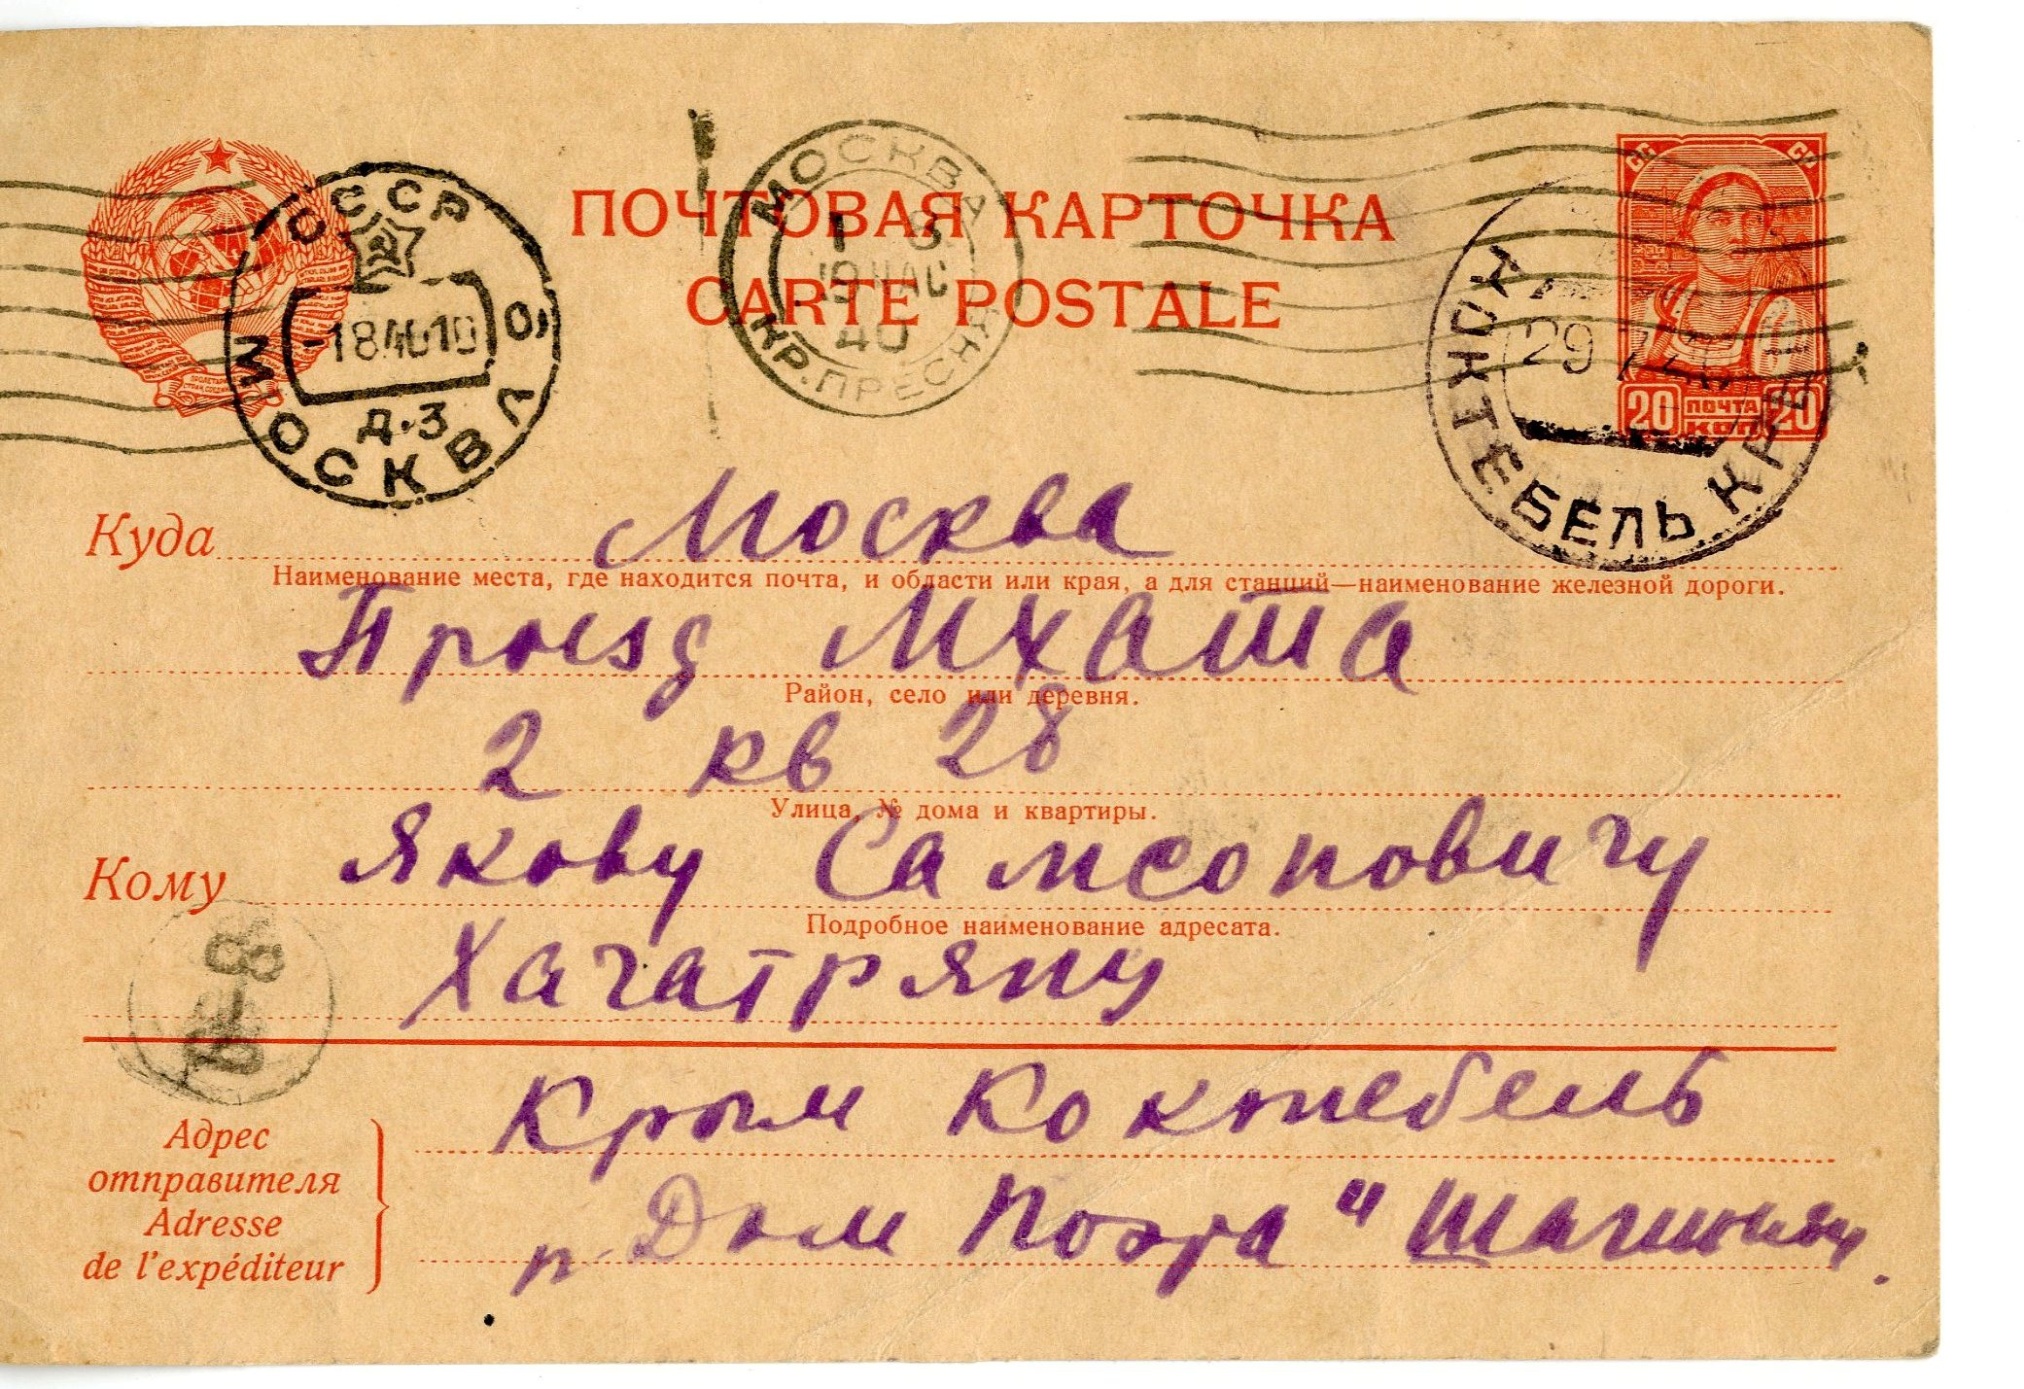 ПОЧТОВАЯ КАРТОЧКА
CARTE POSTALE
СССР
МОСКВА
Д.З
МОСКВА
1 8
40
КР. ПРЕСНЯ
КОКТЕБЕЛЬ
29 7
20 ПОЧТА 20
КОП
Куда Москва
Наименование места, где находится почта, и области или края, а для станций—наименование железной дороги.
Проезд Мхата
Район, село или деревня.
2 кв 28
Улица, № дома и квартиры.
Кому Якову Самсоновичу
Подробное наименование адресата.
Хачатряну
Адрес
отправителя
Adresse
de l'expéditeur
Крым Коктебель
Дом Поэта" Шагинян.